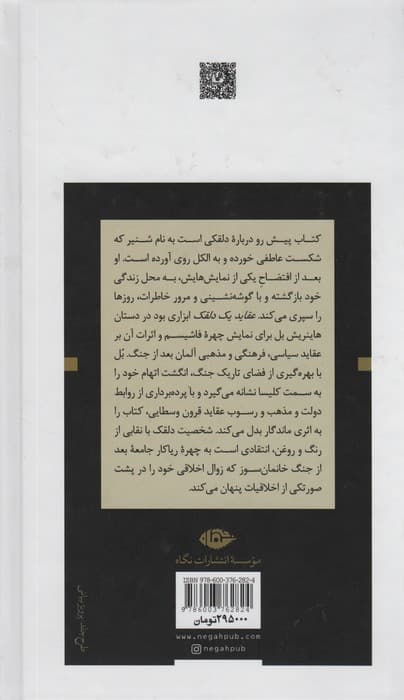 کتاب پیش رو دربارهٔ دلقکی است به نام شنیر که
شکست عاطفی خورده و به الکل روی آورده است. او
بعد از افتضاح یکی از نمایش‌هایش، به محل زندگی
خود بازگشته و با گوشه‌نشینی و مرور خاطرات، روزها
را سپری می‌کند. عقاید یک دلقک ابزاری بود در دستان
هاینریش بل برای نمایش چهرهٔ فاشیسم و اثرات آن بر
عقاید سیاسی، فرهنگی و مذهبی آلمان بعد از جنگ. بُل
با بهره‌گیری از فضای تاریک جنگ، انگشت اتهام خود را
به سمت کلیسا نشانه می‌گیرد و با پرده‌برداری از روابط
دولت و مذهب و رسوب عقاید قرون وسطایی، کتاب را
به اثری ماندگار بدل می‌کند. شخصیت دلقک با نقابی از
رنگ و روغن، انتقادی است به چهرهٔ ریاکار جامعهٔ بعد
از جنگ خانمان‌سوز که زوال اخلاقی خود را در پشت
صورتکی از اخلاقیات پنهان می‌کند.
مؤسسهٔ انتشارات نگاه
ISBN 978-600-376-282-4
9 786003 762824
۲۹۵۰۰۰ تومان
www.negahpub.com
negahpub